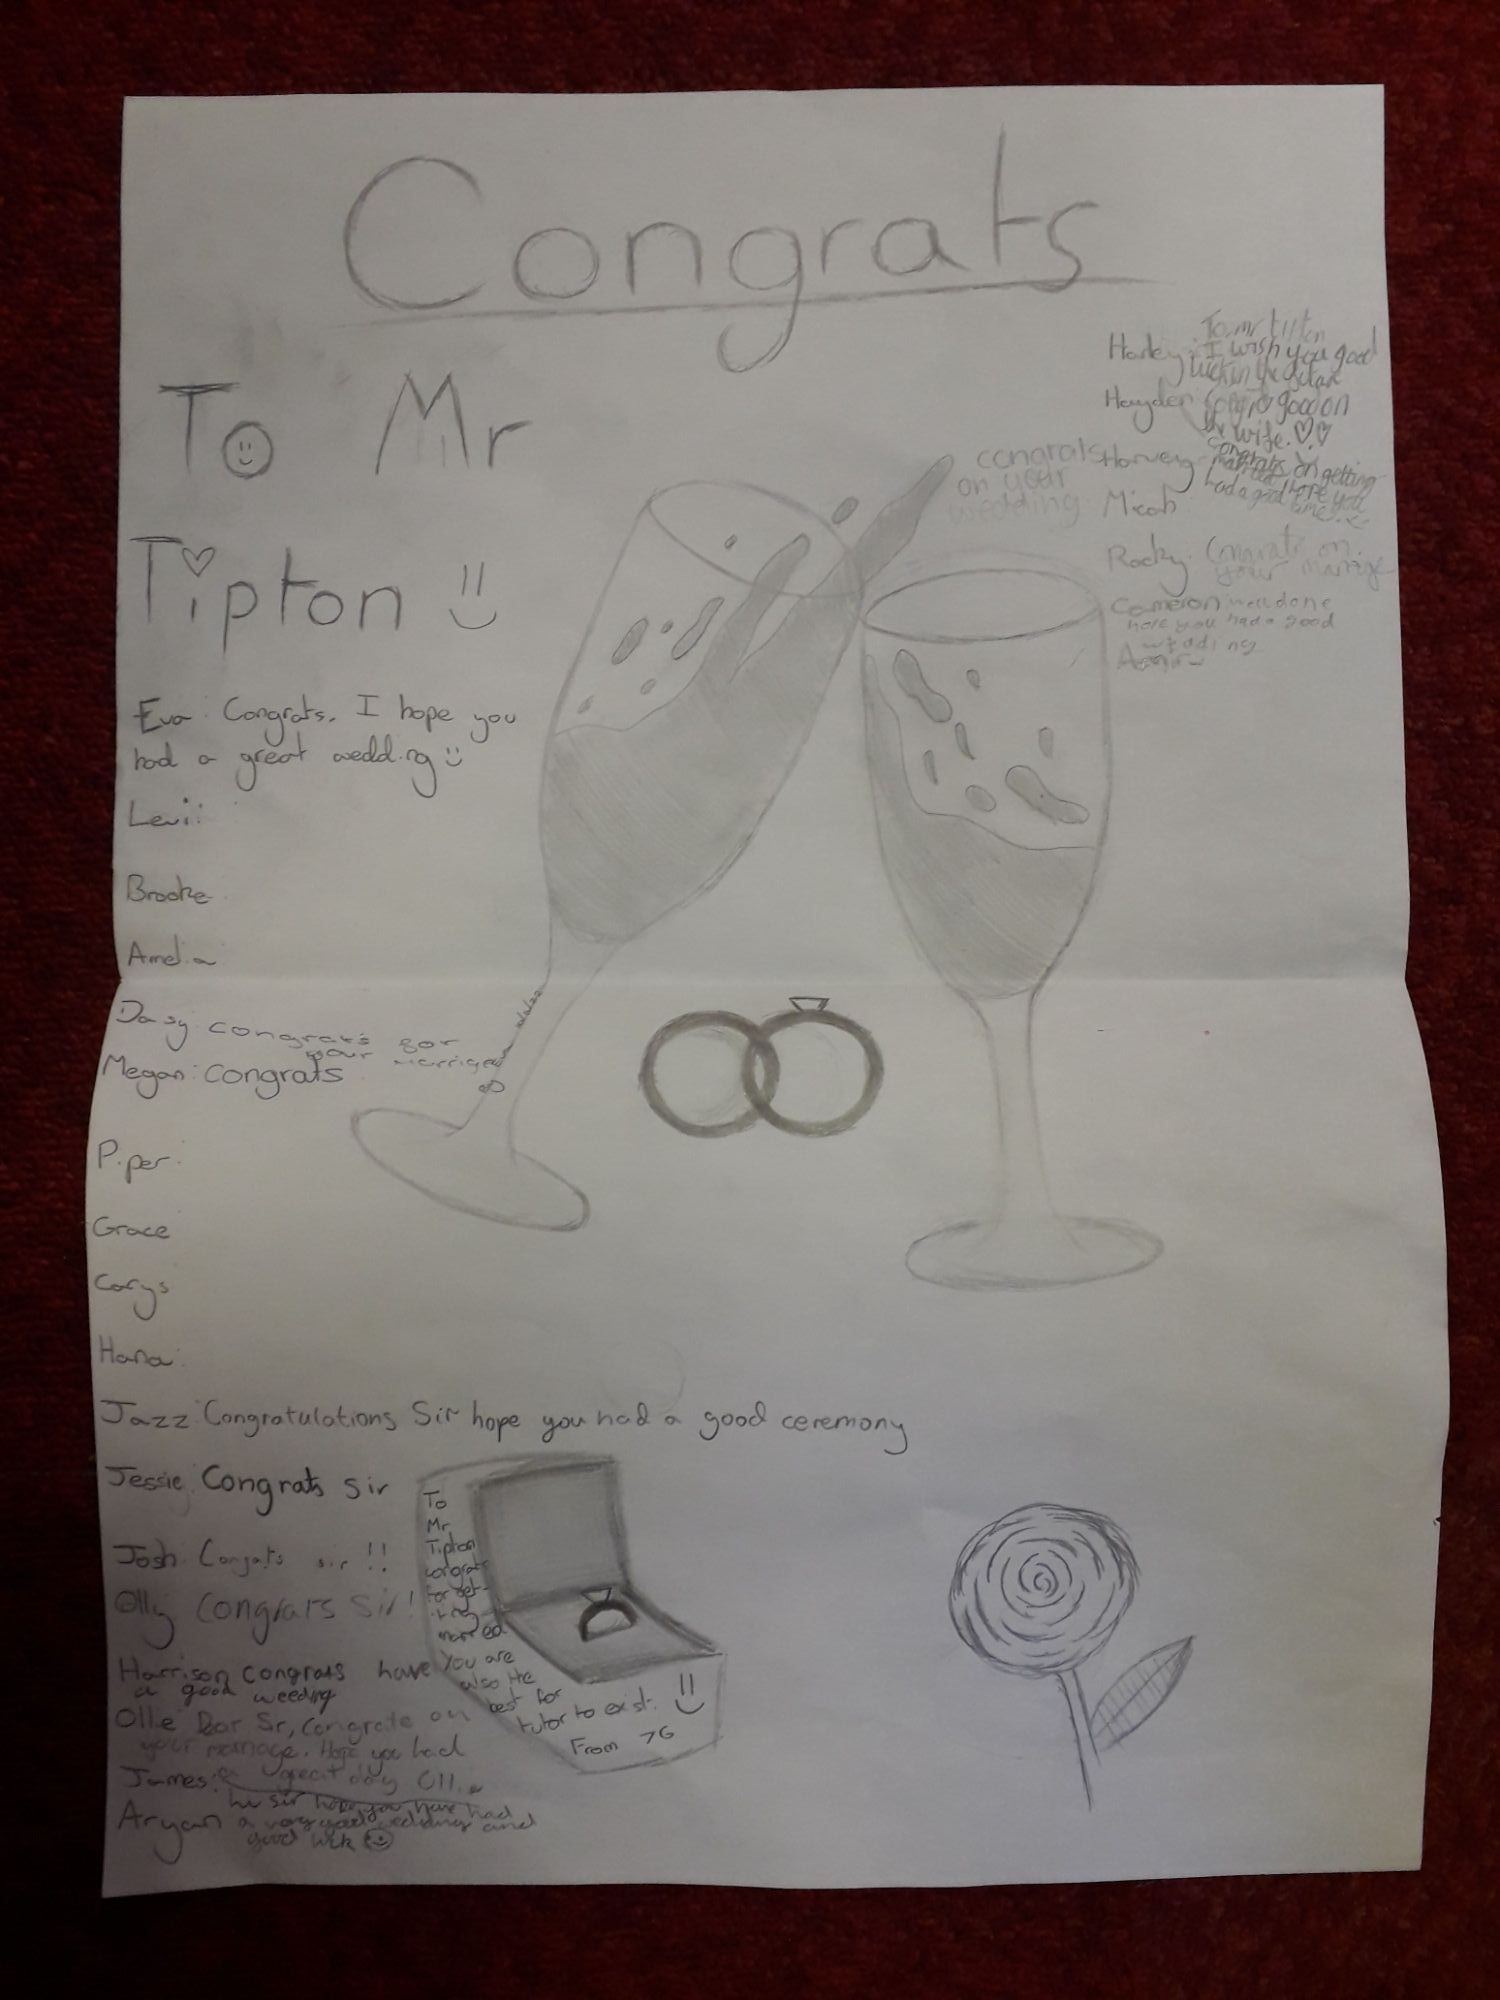 Congrats
To Mr
Tipton
Eva: Congrats. I hope you
had a great wedding
Levi:
Brooke
Amelia
Daisy: congrats for
your marrige
Megan: congrats
Piper:
Grace
Carys
Hana:
Jazz: Congratulations Sir hope you had a good ceremony
Jessie: Congrats sir
Josh: Congats sir !!
Olly congrats Sir!
Harrison congrats have
a good weeding
Ollie Dear Sir, Congrats on
your marriage. Hope you had
a great day Ollie
James:
Aryan hi sir hope you have had
a very good wedding and
good luck
To
Mr
Tipton
congrats
for get-
ting
married
You are
also the
best for
tutor to exist.
From 7G
To mr tipton
Harley: I wish you good
luck in the future
Hayden: Congrats good on
the wife.
Harvey - congrats on getting
married hope you
had a good time
congrats
on your
wedding
Micah
Rocky: Congrats on
your marrige
Cameron well done
hope you had a good
wedding